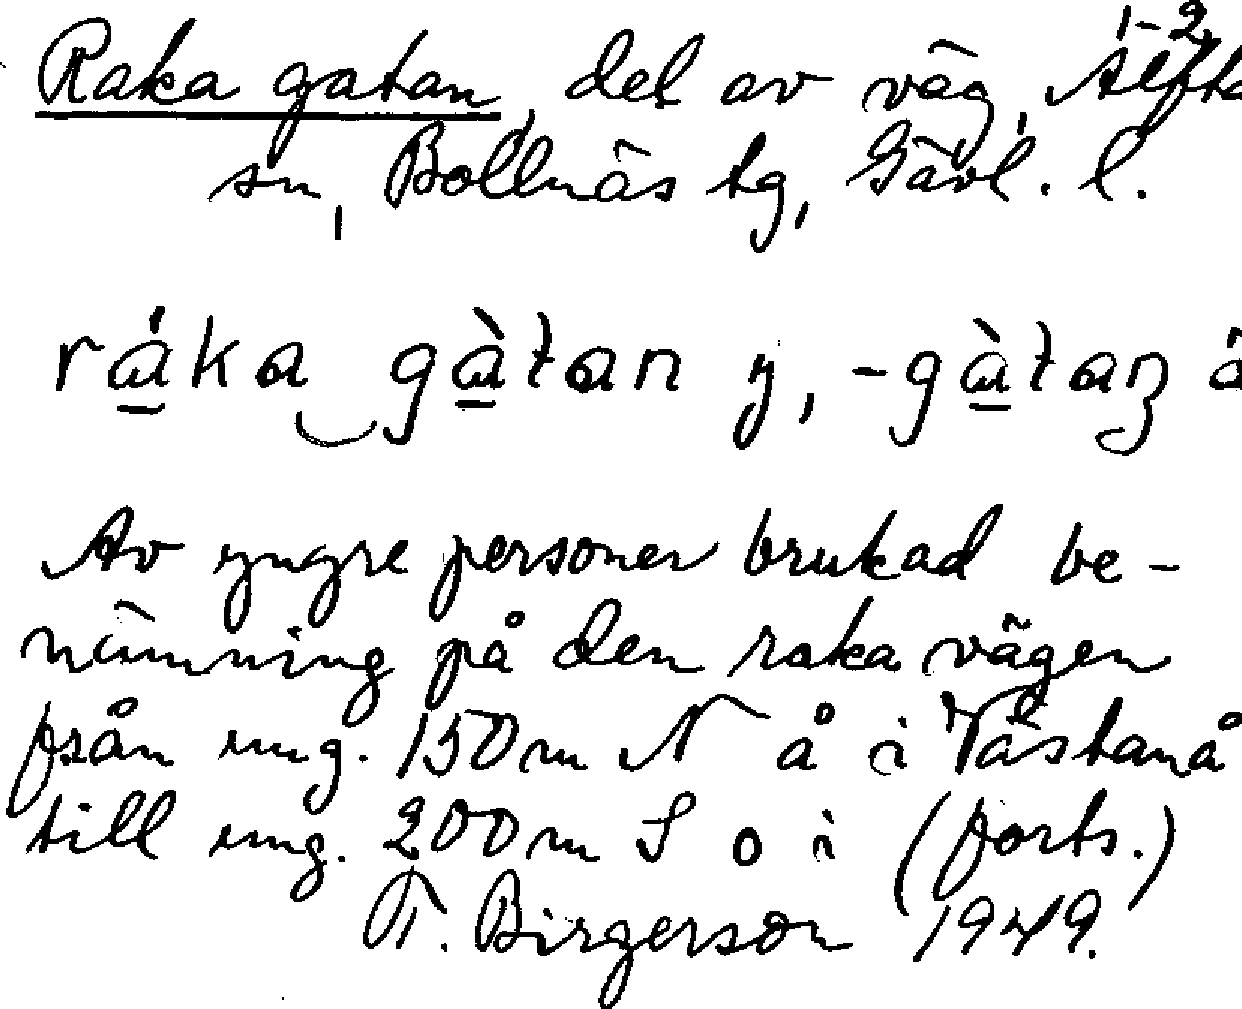 1-2
Raka gatan, del av väg, Alfta
sn, Bollnäs tg, Gävl. l.
ráka gàtan y, -gàtaɳ
Av yngre personer brukad be-
nämning på den raka vägen
från ung. 150 m N å i Västanå
till ung. 200 m S o i (forts.)
T. Birgerson 1949.